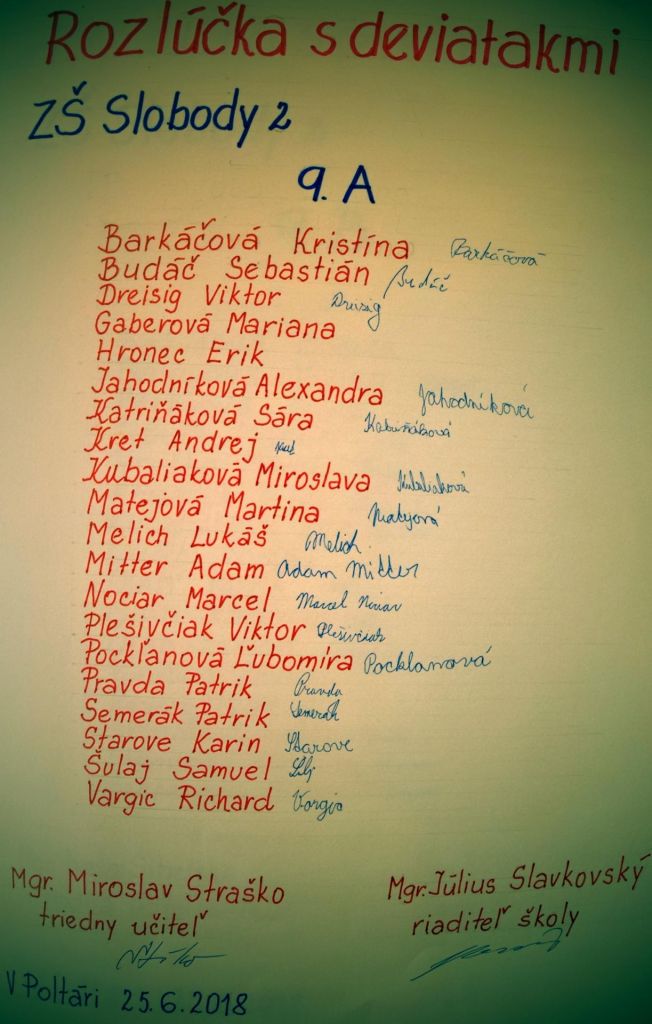 Rozlúčka s deviatakmi
ZŠ Slobody 2
9. A
Barkáčová Kristína Barkáčová
Budáč Sebastián Budáč
Dreisig Viktor Dreisig
Gaberová Mariana
Hronec Erik
Jahodníková Alexandra Jahodníková
Katriňáková Sára Katriňáková
Kret Andrej Kret
Kubaliaková Miroslava Kubaliaková
Matejová Martina Matejová
Melich Lukáš Melich
Mitter Adam Adam Mitter
Nociar Marcel Marcel Nociar
Plešivčiak Viktor Plešivčiak
Pockľanová Ľubomíra Pocklanová
Pravda Patrik Pravda
Semerák Patrik Semerák
Starove Karin Starove
Šulaj Samuel
Vargic Richard Vargic
Mgr. Miroslav Straško
triedny učiteľ
Mgr. Július Slavkovský
riaditeľ školy
V Poltári 25.6.2018